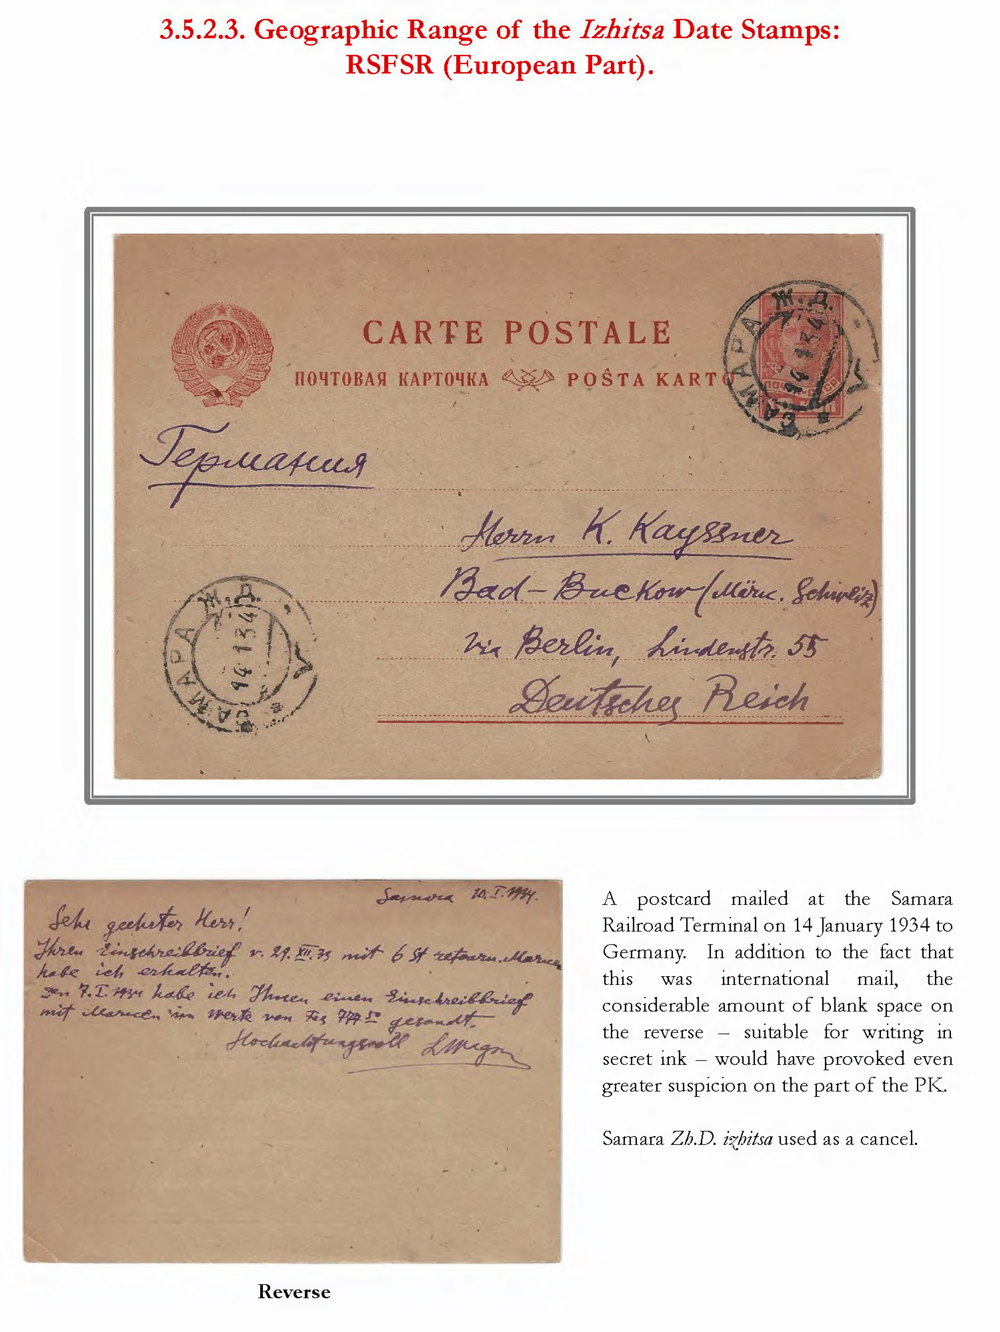 3.5.2.3. Geographic Range of the Izhitsa Date Stamps:
RSFSR (European Part).
CARTE POSTALE
ПОЧТОВАЯ КАРТОЧКА POŜTA KARTO
САМАРА Ж.Д.
14 1 34
Германия
Herrn K. Kayssner
Bad-Buckow (Märk. Schweiz)
via Berlin, Lindenstr. 55
Deutsches Reich
САМАРА Ж.Д.
14 1 34
Samara 10.I.1934.
Sehr geehrter Herr!
Ihren Einschreibbrief v. 29.XII.33 mit 6 St retourn. Marken
habe ich erhalten.
Den 7.I.1934 habe ich Ihnen einen Einschreibbrief
mit Marken im Werte von gesandt.
Hochachtungsvoll LWagner
A postcard mailed at the Samara
Railroad Terminal on 14 January 1934 to
Germany. In addition to the fact that
this was international mail, the
considerable amount of blank space on
the reverse – suitable for writing in
secret ink – would have provoked even
greater suspicion on the part of the PK.
Samara Zh.D. izhitsa used as a cancel.
Reverse